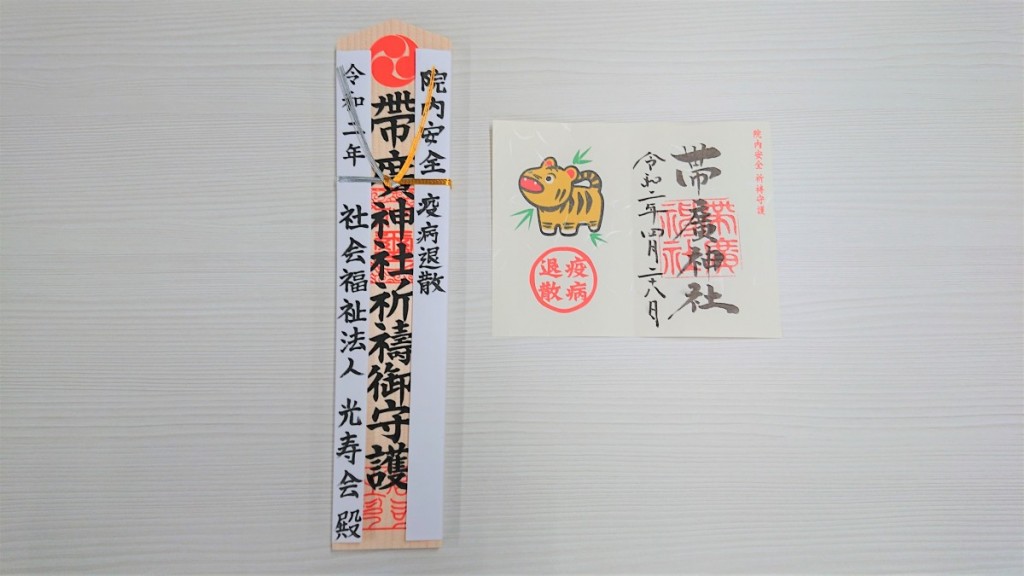 院内安全 疫病退散
帶廣神社祈禱御守護
令和二年 社会福祉法人 光寿会 殿
院内安全 祈祷守護
帯廣神社
令和二年四月二十八日
疫病
退散